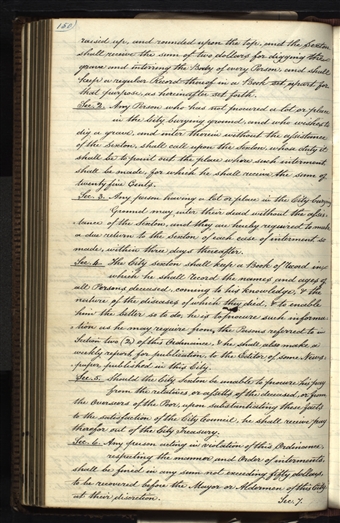 152
raised up, and rounded upon the top, and the Sexton
shall receive the sum of two dollars for digging the
grave and interring the Body of every Person, and shall
keep a regular Record thereof in a Book set apart for
that purpose, as hereinafter set forth.
Sec. 2. Any Person who has not procured a lot or place
in the City burying ground, and who wishes to
dig a grave, and inter therein without the assistance
of the Sexton, shall call upon the Sexton whose duty it
shall be to point out the place where such interment
shall be made, for which he shall receive the sum of
twenty five Cents.
Sec. 3. Any person having a lot or place in the City burying
Ground may inter their dead without the assis-
tance of the Sexton, and they are hereby required to make
a due return to the Sexton of each case of interment so
made, within three days thereafter.
Sec. 4. The City Sexton shall keep a Book of Record in
which he shall record the names and ages of
all Persons deceased, coming to his knowledge, & the
nature of the diseases of which they died, & to enable
him the better so to do, he is to procure such informa-
tion as he may require from the Persons referred to in
Section two (2) of this Ordinance, & he shall also make a
weekly report for publication, to the Editor of some News-
paper published in this City.
Sec. 5. Should the City Sexton be unable to procure his pay
from the relatives or assets of the deceased, or from
the Overseers of the Poor, upon substantiating these facts
to the satisfaction of the City Council, he shall receive pay
therefor out of the City Treasury.
Sec. 6. Any person acting in violation of this Ordinance
respecting the manner and Order of interments,
shall be fined in any sum not exceeding fifty dollars,
to be recovered before the Mayor or Aldermen of this City
at their discretion.
Sec. 7.